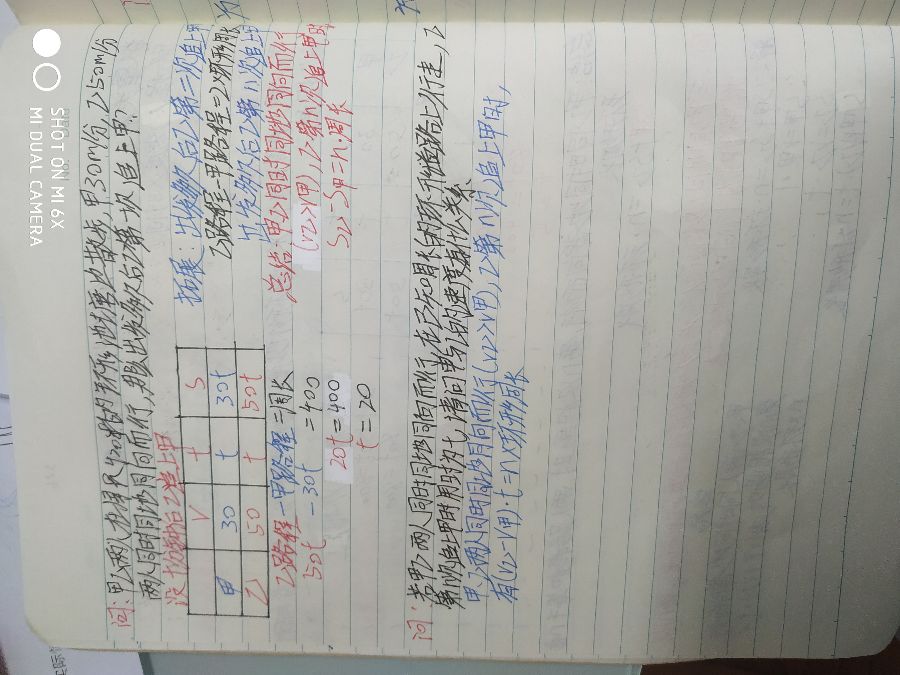 问:甲乙两人在周长400米的环形池塘边散步,甲30m/分,乙50m/分
两人同时同地同向而行,那么出发多久后乙第一次追上甲?
设t分钟后乙追上甲
V t S
甲 30 t 30t
乙 50 t 50t
乙路程-甲路程=周长
50t - 30t = 400
20t=400
t=20
拓展:出发多久后乙第二次追上甲
乙路程-甲路程=2×环形周
出发多久后乙第n次追上
总结:甲乙同时同地同向而行
(V乙>V甲),乙第n次追上甲时
S乙-S甲=n·周长
问:若甲乙两人同时同地同向而行,在已知周长的环形道路上行走,乙
第n次追上甲时用时为t,请问甲与乙的速度有什么关系
甲乙两人同时同地同向而行(V乙>V甲),乙第n次追上甲时,
有(V乙-V甲)·t=n×环形周长
SHOT ON MI 6X
MI DUAL CAMERA